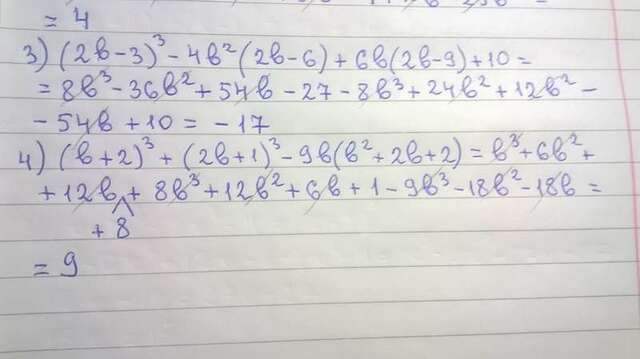 = 4
3) (2b-3)³ - 4b²(2b-6) + 6b(2b-9) + 10 =
= 8b³ - 36b² + 54b - 27 - 8b³ + 24b² + 12b² -
- 54b + 10 = -17
4) (b+2)³ + (2b+1)³ - 9b(b² + 2b + 2) = b³ + 6b² +
+ 12b + 8b³ + 12b² + 6b + 1 - 9b³ - 18b² - 18b =
+ 8
= 9